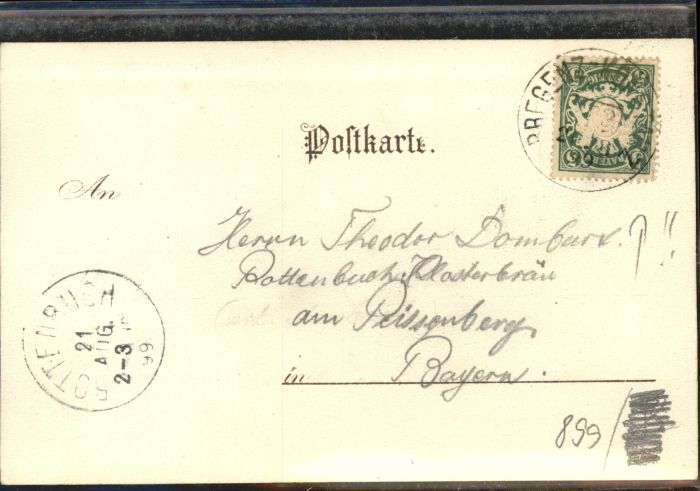 BREGENZ
BAYERN
Postkarte.
An
Herrn Theodor Dombart. ? !!
Rottenbuch, Klosterbräu
am Peissenberg
in Bayern.
ROTTENBUCH
21
AUG.
2-3
99
899 /